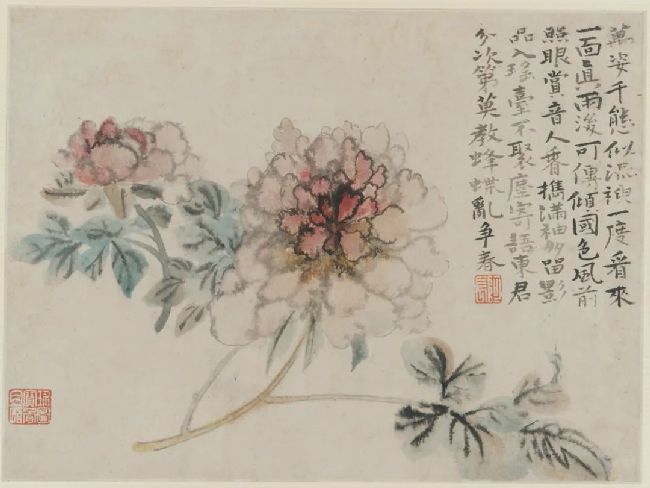 萬姿千態似流神一度看來
一面真雨後可傳傾國色風前
照眼賞音人香携滿袖多留影
品入瑤臺不聚塵寄語東君
分次第莫教蜂蝶亂爭春